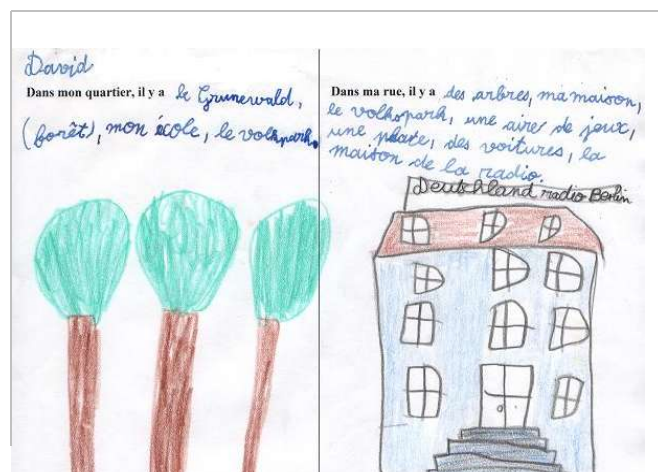 David
Dans mon quartier, il y a le Grunewald,
(forêt), mon école, le volkspark.
Dans ma rue, il y a des arbres, ma maison,
le volkspark, une aire de jeux,
une place, des voitures, la
maison de la radio.
Deutchland radio Berlin